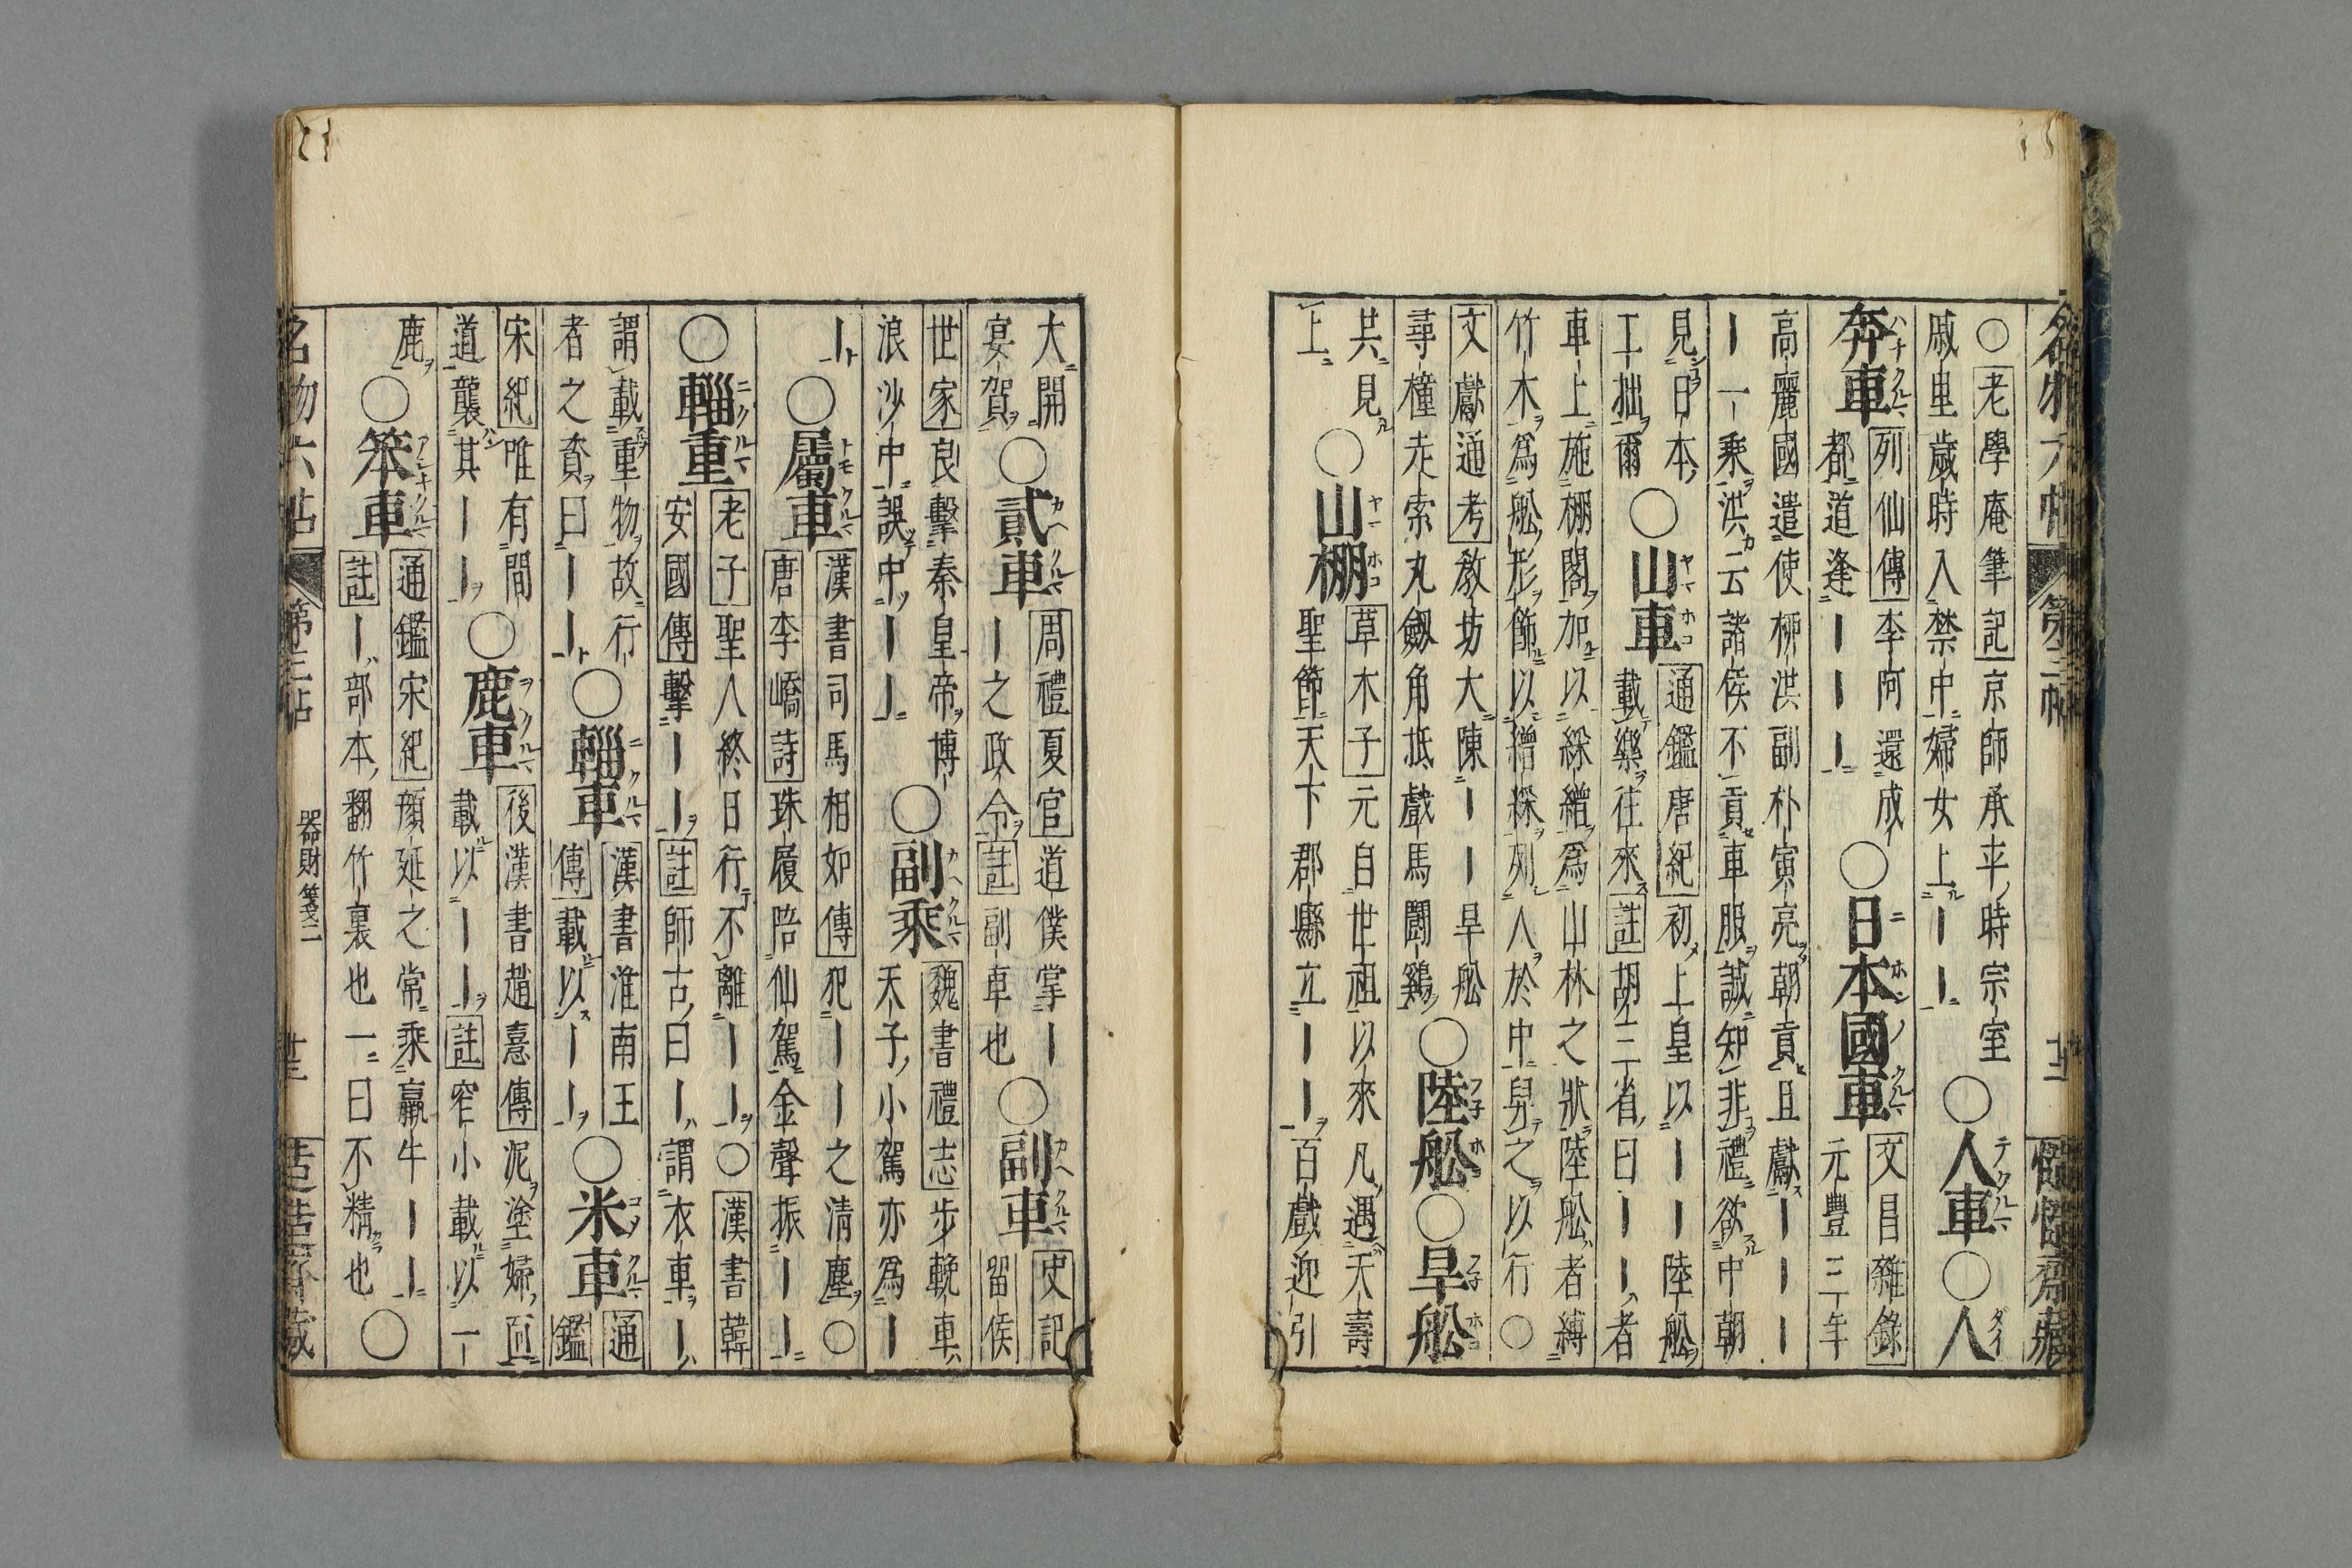 名物六帖 第三帖 十二 慥慥齋藏
○老學庵筆記京師承平時宗室
戚里歳時入禁中婦女上丨丨
○人車○人
奔車
列仙傳李阿還成
都道逢丨丨丨
○日本國車
文昌雜錄
元豐三年
高麗國遣使柳洪副朴寅亮朝貢且獻丨丨丨
丨一乘洪云諸侯不貢車服誠知非禮欲中朝
見日本
工拙爾
○山車
通鑑唐紀初上皇以丨丨陸舩
載樂往來註胡三省曰丨丨者
車上施棚閣加以綵繒爲山林之狀陸舩者縛
竹木爲舩形飾以繒綵列人於中舁之以行○
文獻通考教坊大陳丨丨旱舩
尋橦走索丸劔角抵戲馬鬪鷄
○陸舩○旱舩
共見
上
○山棚
草木子元自世祖以來凡遇天壽
聖節天下郡縣立丨丨百戲迎引
大開
宴賀
○貳車
周禮夏官道僕掌丨
丨之政令註副車也
○副車
史記
留侯
世家良擊秦皇帝博
浪沙中誤中丨丨
○副乘
魏書禮志步輓車
天子小駕亦爲丨
丨
○屬車
漢書司馬相如傳犯丨丨之清塵○
唐李嶠詩珠履陪仙駕金聲振丨丨
○輜重
老子聖人終日行不離丨丨○漢書韓
安國傳擊丨丨註師古曰丨謂衣車丨
謂載重物故行
者之資曰丨丨
○輜車
漢書淮南王
傳載以丨丨
○米車
通
鑑
宋紀唯有間
道襲其丨丨
○鹿車
後漢書趙憙傳泥塗婦面
載以丨丨註窄小載以一
鹿
○笨車
通鑑宋紀顏延之常乘羸牛丨丨
註丨部本翻竹裏也一曰不精也
○
名物六帖 第三帖 器財箋二 十三 慥慥齋藏